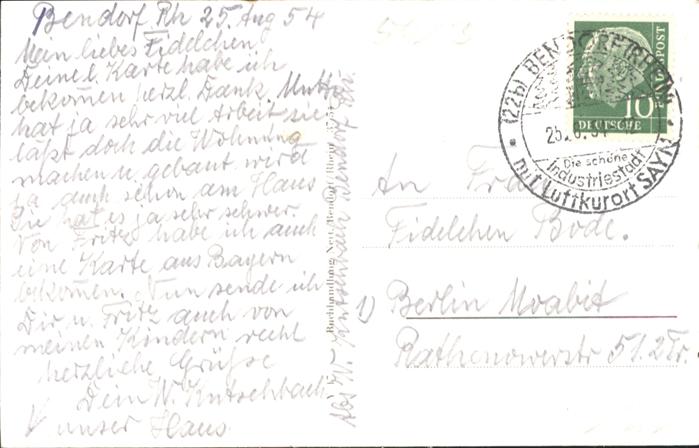 Bendorf Rh 25 Aug 54
Mein liebes Fidelchen,
Deine l. Karte habe ich
bekommen herzl. Dank. Mutti
hat ja sehr viel Arbeit sie
läßt doch die Wohnung
machen u. gebaut wird
ja auch schon am Haus
Die hat es ja sehr schwer.
Von Fritz habe ich auch
eine Karte aus Bayern
bekommen. Nun sende ich
Dir u. Fritz auch von
meinen Kindern recht
herzliche Grüße
Dein W. Kutschbach
unser Haus
Abs W. Kutschbach Bendorf Rh.
Buchhandlung Bendorf/Rhein
DEUTSCHE
10
POST
(22b) BENDORF (RHEIN)
Die schöne
Industriestadt
mit Luftkurort SAYN
An Frau
Fidelchen Bode.
1) Berlin Moabit
Rathenowerstr 51. 2Tr.